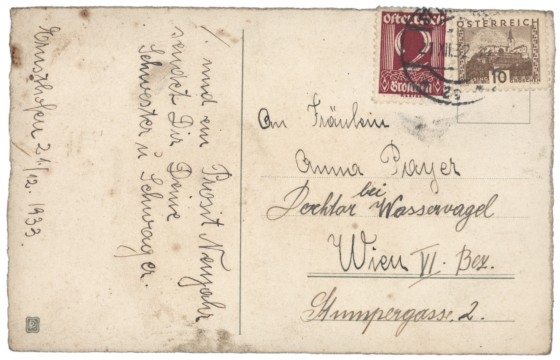 Ernsthofen 21./12. 1933.
/. und ein Prosit Neujahr
sendet Dir Deine
Schwester u Schwager.
Österreich
2
Groschen
ÖSTERREICH
10
An Fräulein
Anna Payer
bei
Docktor Wasservagel
Wien VI. Bez.
Stumpergasse. 2.